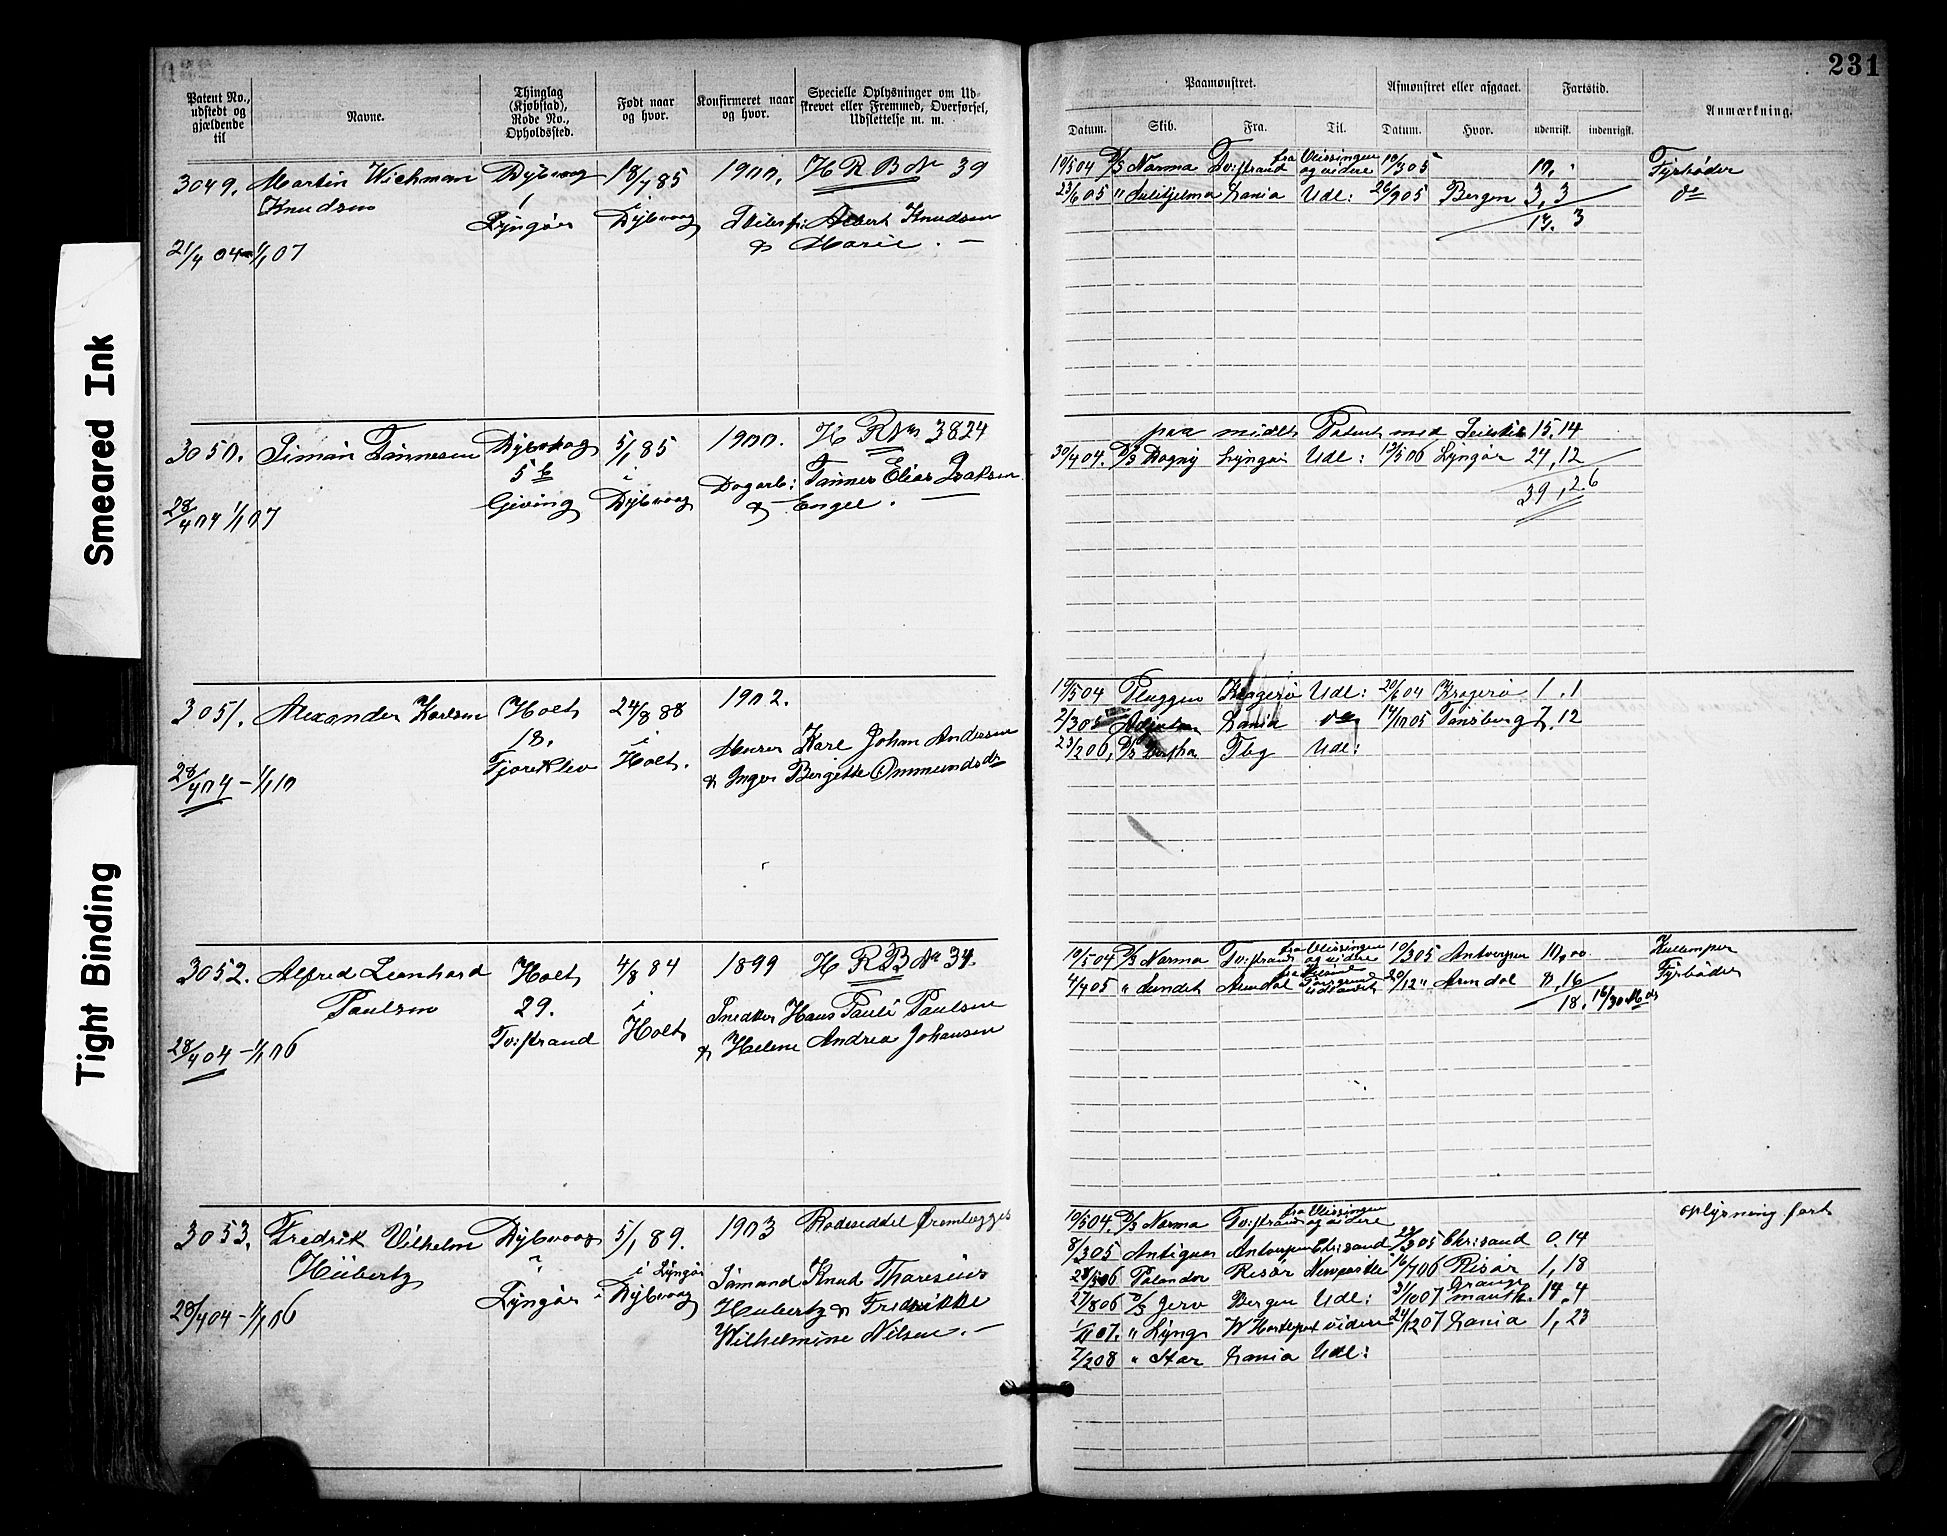 231
Patent No., udstedt og gjældende til
Navne.
Thinglag (Kjøbstad), Rode No., Opholdssted.
Født naar og hvor.
Konfirmeret naar og hvor.
Specielle Oplysninger om Udskrevet eller Fremmed, Overførsel, Udslettelse m. m.
Paamønstret.
Afmønstret eller afgaaet.
Fartstid.
Anmærkning.
Datum. Skib. Fra. Til. Datum. Hvor. udenrigsk. indenrigsk.
Smeared Ink
Tight Binding
3049. Martin Wichman Dybvaag 18/7 85 1900. H R B No 39
Knudsen i
Lyngør Dybvaag Albert Knudsen
21/4 04 - 1/1 07 & Marie. —
10/5 04 D/S Norma Tv:strand fra Vlissingen og videre 10/3 05 10, Fyrbøder
23/6 05 " Sulitjelma Lania Udl: 26/9 05 Bergen 3, 3 do
13. 3
3050. Simon Tønnesen Dybvaag 5/1 85 1900. H R No 3824
5 b i Tønnes Elias Isaksen
28/4 04 1/1 07 Giving Dybvaag & Engel.
paa midlt Patent med Seilskib 15.14
30/4 04. D/S Dagny Lyngør Udl: 19/5 06 Lyngør 24, 12
39, 26
3051. Alexander Karlsen Holt 24/8 88 1902.
18. i Murer Karl Johan Andersen
28/4 04 - 1/1 10 Fjæreklev Holt. & Inger Bergitte Ommundsdr
19/5 04 Pluggen Kragerø Udl: 20/6 04 Kragerø 1. 1
2/3 05 Lania do 14/10 05 Tønsberg 7. 12
23/2 06, D/S Bertha Tbg Udl:
3052. Alfred Leonhard Holt 4/8 84 1899 H R B No 34.
Paulsen 29. i Snedker Hans Pauli Paulsen
28/4 04 - 1/1 06 Tv:strand Holt & Helene Andrea Johansen
10/5 04 D/S Norma Tv:strand fra Vlissingen og videre 10/3 05 Antwerpen 10,00 Kullemper
4/4 05 " Sundet Arendal 20/12 " Arendal 8, 16 Fyrbøder
18. 16/30 Mdr
3053. Fredrik Vilhelm Dybvaag 5/1 89. 1903 Rodeseddel fremlægges
Hübertz i Lyngør Sømand Knud Tharesius
28/4 04 - 1/1 06 Lyngør i Dybvaag Hubertz & Fredrikke
Wilhelmine Nilsen. —
10/5 04. D/S Norma Tv:strand fra Vlissingen og videre oplysning fort
8/3 05 Antigua Antwerpen Chrisand 22/3 05 Chrisand 0.14
28/5 06 Palander Risør Newcastle 16/7 06 Risør 1, 18
27/8 06 D/S Jerv Bergen Udl: 31/10 07 Grangemouth. 14. 4
1/11 07. " Lyng W Hartlepool videre 24/12 07 Lania 1, 23
7/2 08 " Star Lania Udl: